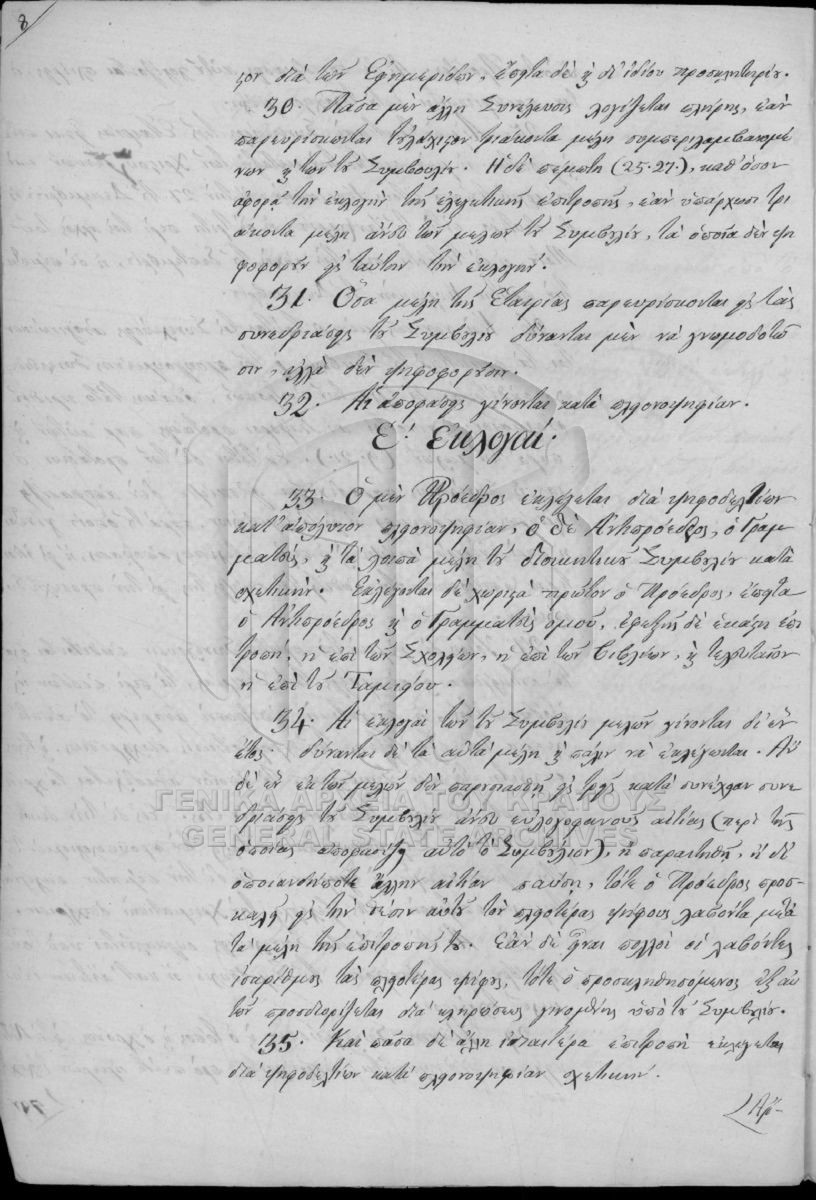 8
ζον διὰ τῶν Ἐφημερίδων, ἔπειτα δὲ ϗ δι' ἰδίου προσκλητηρίου.
30. Πᾶσα μὲν ἄλλη Συνέλευσις λογίζεται πλήρης, ἐὰν
παρευρίσκωνται τοὐλάχιστον τριάκοντα μέλη συμπεριλαμβανομέ
νων ϗ τῶν τοῦ Συμβουλίου. Ἡ δὲ πέμπτη (25.27.), καθ' ὅσον
ἀφορᾷ τὴν ἐκλογὴν τῆς ἐλεγκτικῆς ἐπιτροπῆς, ἐὰν ὑπάρχωσι τρι
άκοντα μέλη ἄνευ τῶν μελῶν τοῦ Συμβουλίου, τὰ ὁποῖα δὲν ψη
φοφοροῦν εἰς ταύτην τὴν ἐκλογήν.
31. Ὅσα μέλη τῆς Ἑταιρίας παρευρίσκονται εἰς τὰς
συνεδριάσεις τοῦ Συμβουλίου δύνανται μὲν νὰ γνωμοδοτῶ
σιν, ἀλλὰ δὲν ψηφοφοροῦσιν.
32. Αἱ ἀποφάσεις γίνονται κατὰ πλειονοψηφίαν.
Ε΄. Ἐκλογαί.
33. Ὁ μὲν Πρόεδρος ἐκλέγεται διὰ ψηφοδελτίων
κατ' ἀπόλυτον πλειονοψηφίαν, ὁ δὲ Ἀντιπρόεδρος, ὁ Γραμ
ματεύς, ϗ τὰ λοιπὰ μέλη τοῦ διοικητικοῦ Συμβουλίου κατὰ
σχετικήν. Ἐκλέγονται δὲ χωριστὰ πρῶτον ὁ Πρόεδρος, ἔπειτα
ὁ Ἀντιπρόεδρος ϗ ὁ Γραμματεὺς ὁμοῦ, ἐφεξῆς δὲ ἑκάστη ἐπι
τροπή, ἡ ἐπὶ τῶν Σχολείων, ἡ ἐπὶ τῶν Βιβλίων, ϗ τελευταῖον
ἡ ἐπὶ τοῦ Ταμείου.
34. Αἱ ἐκλογαὶ τῶν τοῦ Συμβουλίου μελῶν γίνονται δι' ἓν
ἔτος. δύνανται δὲ τὰ αὐτὰ μέλη ϗ πάλιν νὰ ἐκλέγωνται. Ἂν
δὲ ἓν ἐκ τῶν μελῶν δὲν παρουσιασθῇ εἰς τρεῖς κατὰ συνέχειαν συνε
δριάσεις τοῦ Συμβουλίου ἄνευ εὐλογοφανοῦς αἰτίας (περὶ τῆς
ὁποίας ἀποφασίζει αὐτὸ τὸ Συμβούλιον), ἢ παραιτηθῇ, ἢ δι'
ὁποιανδήποτε ἄλλην αἰτίαν παύσῃ, τότε ὁ Πρόεδρος προσ
καλεῖ εἰς τὴν θέσιν αὐτοῦ τὸν πλειοτέρας ψήφους λαβόντα μετὰ
τὰ μέλη τῆς ἐπιτροπῆς του. Ἐὰν δὲ ἦναι πολλοὶ οἱ λαβόντες
ἰσαρίθμους τὰς πλειοτέρας ψήφους, τότε ὁ προσκληθησόμενος ἐξ αὐ
τῶν προσδιορίζεται διὰ κληρώσεως γινομένης ὑπὸ τοῦ Συμβουλίου.
35. Καὶ πᾶσα δὲ ἄλλη ἰδιαιτέρα ἐπιτροπὴ ἐκλέγεται
διὰ ψηφοδελτίων κατὰ πλειονοψηφίαν σχετικήν.
Ἀρ-
ΓΕΝΙΚΑ ΑΡΧΕΙΑ ΤΟΥ ΚΡΑΤΟΥΣ
GENERAL STATE ARCHIVES